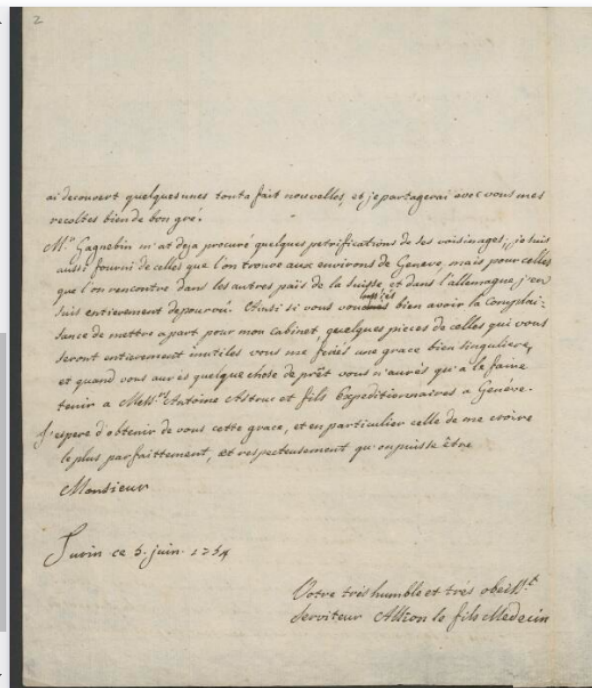 2
ai decouvert quelques unes tout a fait nouvelles, et je partagerai avec vous mes
recoltes bien de bon gré.
Mr. Gagnebin m'at deja procuré quelques petrifications de ses voisinages; je suis
aussi fourni de celles que l'on trouve aux environs de Geneve, mais pour celles
que l'on rencontre dans les autres païs de la Suisse, et dans l'allemagne j'en
suis entierement depourvû. Ainsi si vous bien avoir la Complai-
sance de mettre apart pour mon Cabinet, quelques pieces de celles qui vous
seront entierement inutiles vous me feriés une grace bien singuliere,
et quand vous aurés quelque chose de prêt vous n'aurés qu'a le faire
tenir a Messrs. Antoine Astruc et fils Expeditionnaires a Genéve.
J'espere d'obtenir de vous cette grace, et en particulier celle de me croire
le plus parfaittement, et respectueusement qu'on puisse être
Monsieur
Turin ce 5. juin 1754
Votre trés humble et trés obeisst.
Serviteur Allion le fils Medecin